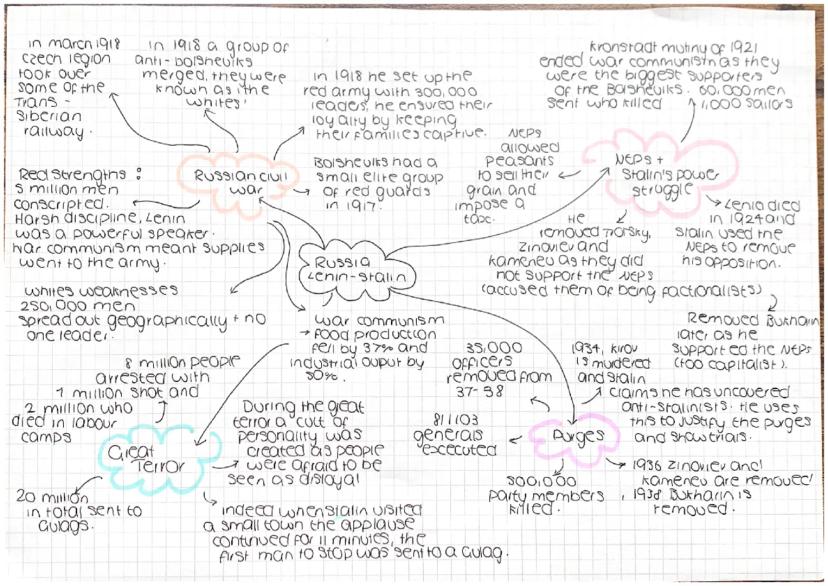 in march 1918
czech legion
took over
some of the
Trans -
Siberian
railway.
In 1918 a group of
anti-bolsheviks
merged, they were
known as 'the
whites'
in 1918 he set up the
red army with 300,000
leaders, he ensured their
loyalty by keeping
their families captive.
Kronstadt mutiny of 1921
ended war communism as they
were the biggest supporters
of the Bolsheviks. 60,000 men
sent who killed
1,000 sailors
Russian civil
war
Bolsheviks had a
small elite group
of red guards
in 1917.
NEPs
allowed
peasants
to sell their
grain and
impose a
tax.
NEPs +
Stalin's power
struggle
Red strengths :
5 million men
conscripted.
Harsh discipline, Lenin
was a powerful speaker.
War communism meant supplies
went to the army.
Lenin died
in 1924 and
Stalin used the
NEPs to remove
his opposition.
He
removed Trotsky,
Zinoviev and
Kamenev as they did
not support the NEPs
(accused them of being factionalists)
Russia
Lenin-Stalin
Removed Bukharin
later as he
supported the NEPs
(too capitalist).
Whites weaknesses
250,000 men
spread out geographically + no
one leader.
war communism
→ food production
fell by 37% and
industrial ouput by
80%.
8 million people
arrested with
1 million shot and
2 million who
died in labour
camps
Great
Terror
During the great
terror a 'cult of
personality' was
created as people
were afraid to be
seen as disloyal
20 million
in total sent to
Gulags.
indeed when Stalin visited
a small town the applause
continued for 11 minutes, the
first man to stop was sent to a Gulag.
35,000
officers
removed from
37-38
1934, Kirov
is murdered
and Stalin
claims he has uncovered
anti-Stalinists. He uses
this to justify the purges
and showtrials.
Purges
generals
executed
300,000
party members
killed.
1936 Zinoviev and
Kamenev are removed
, 1938 Bukharin is
removed.